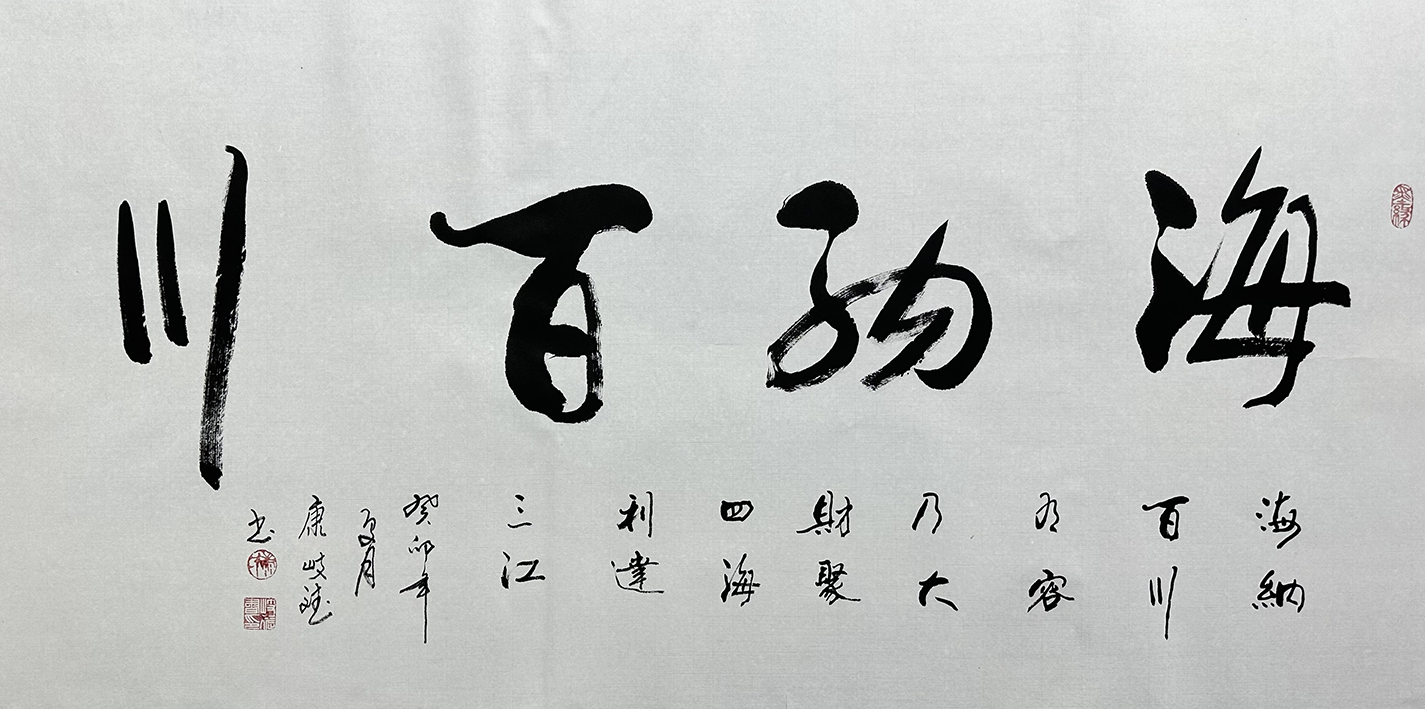 海納百川
海納
百川
有容
乃大
財聚
四海
利達
三江
癸卯年
夏月
康岐
书